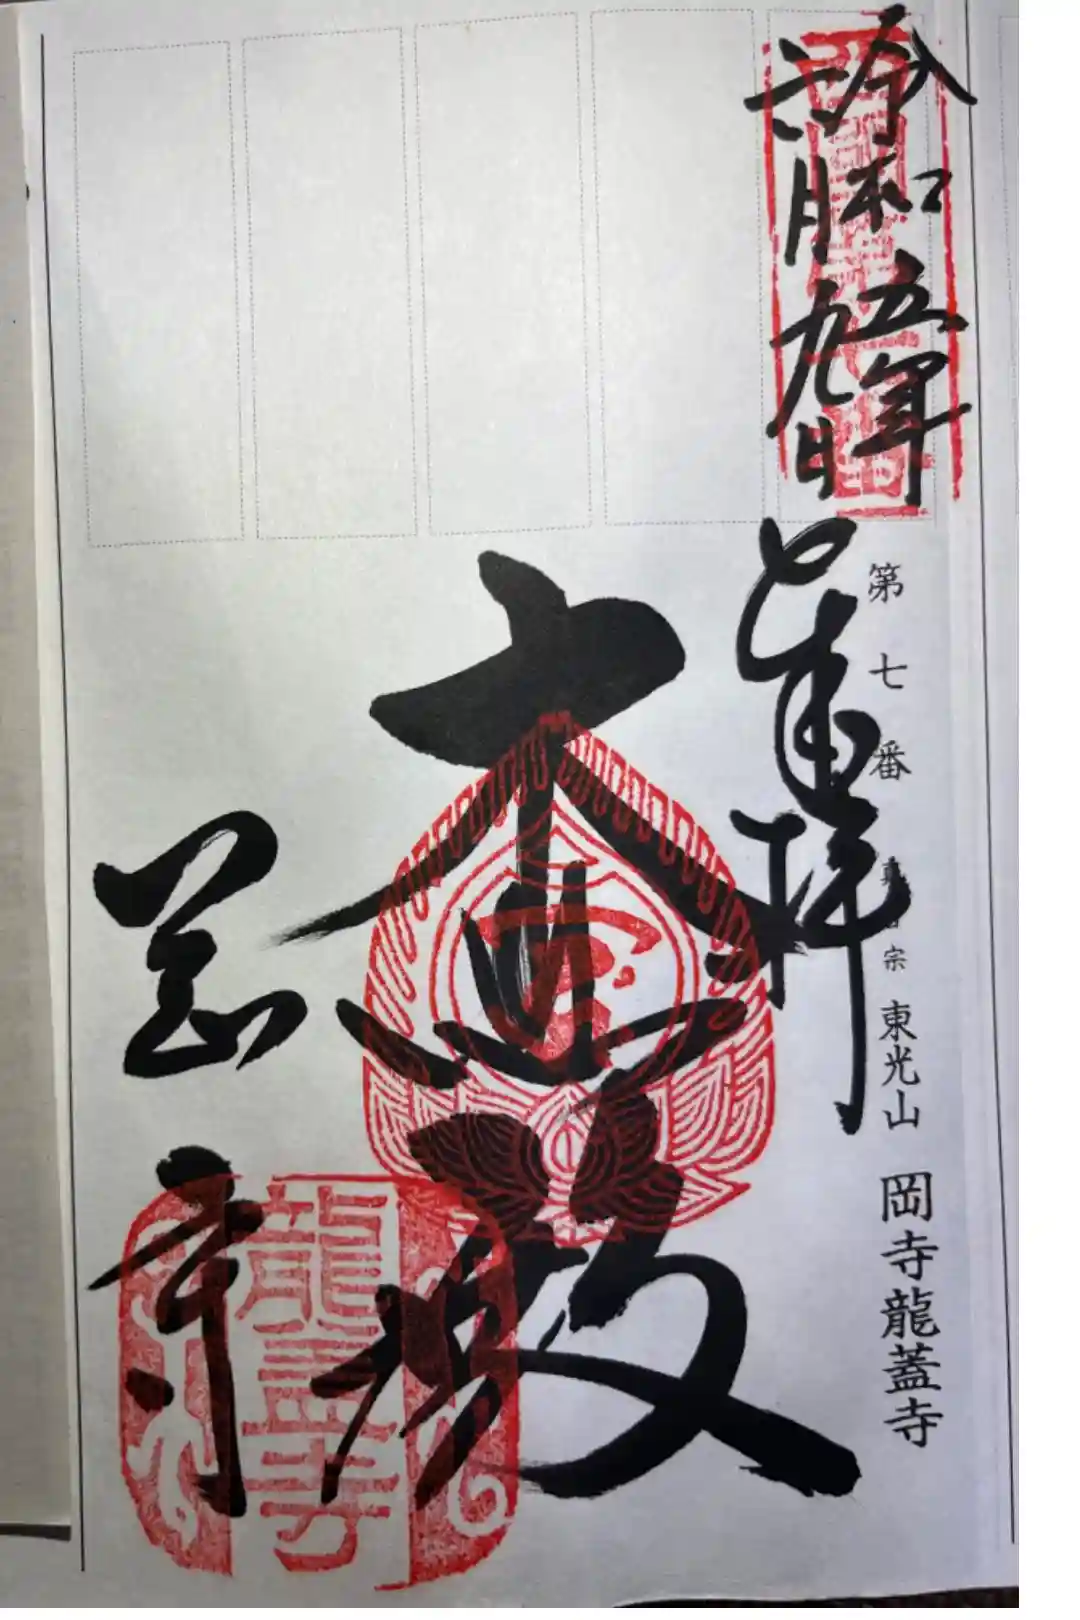 令和五年
六月九日
奉拝
第七番
真言宗 東光山 岡寺龍蓋寺
岡寺
龍蓋寺